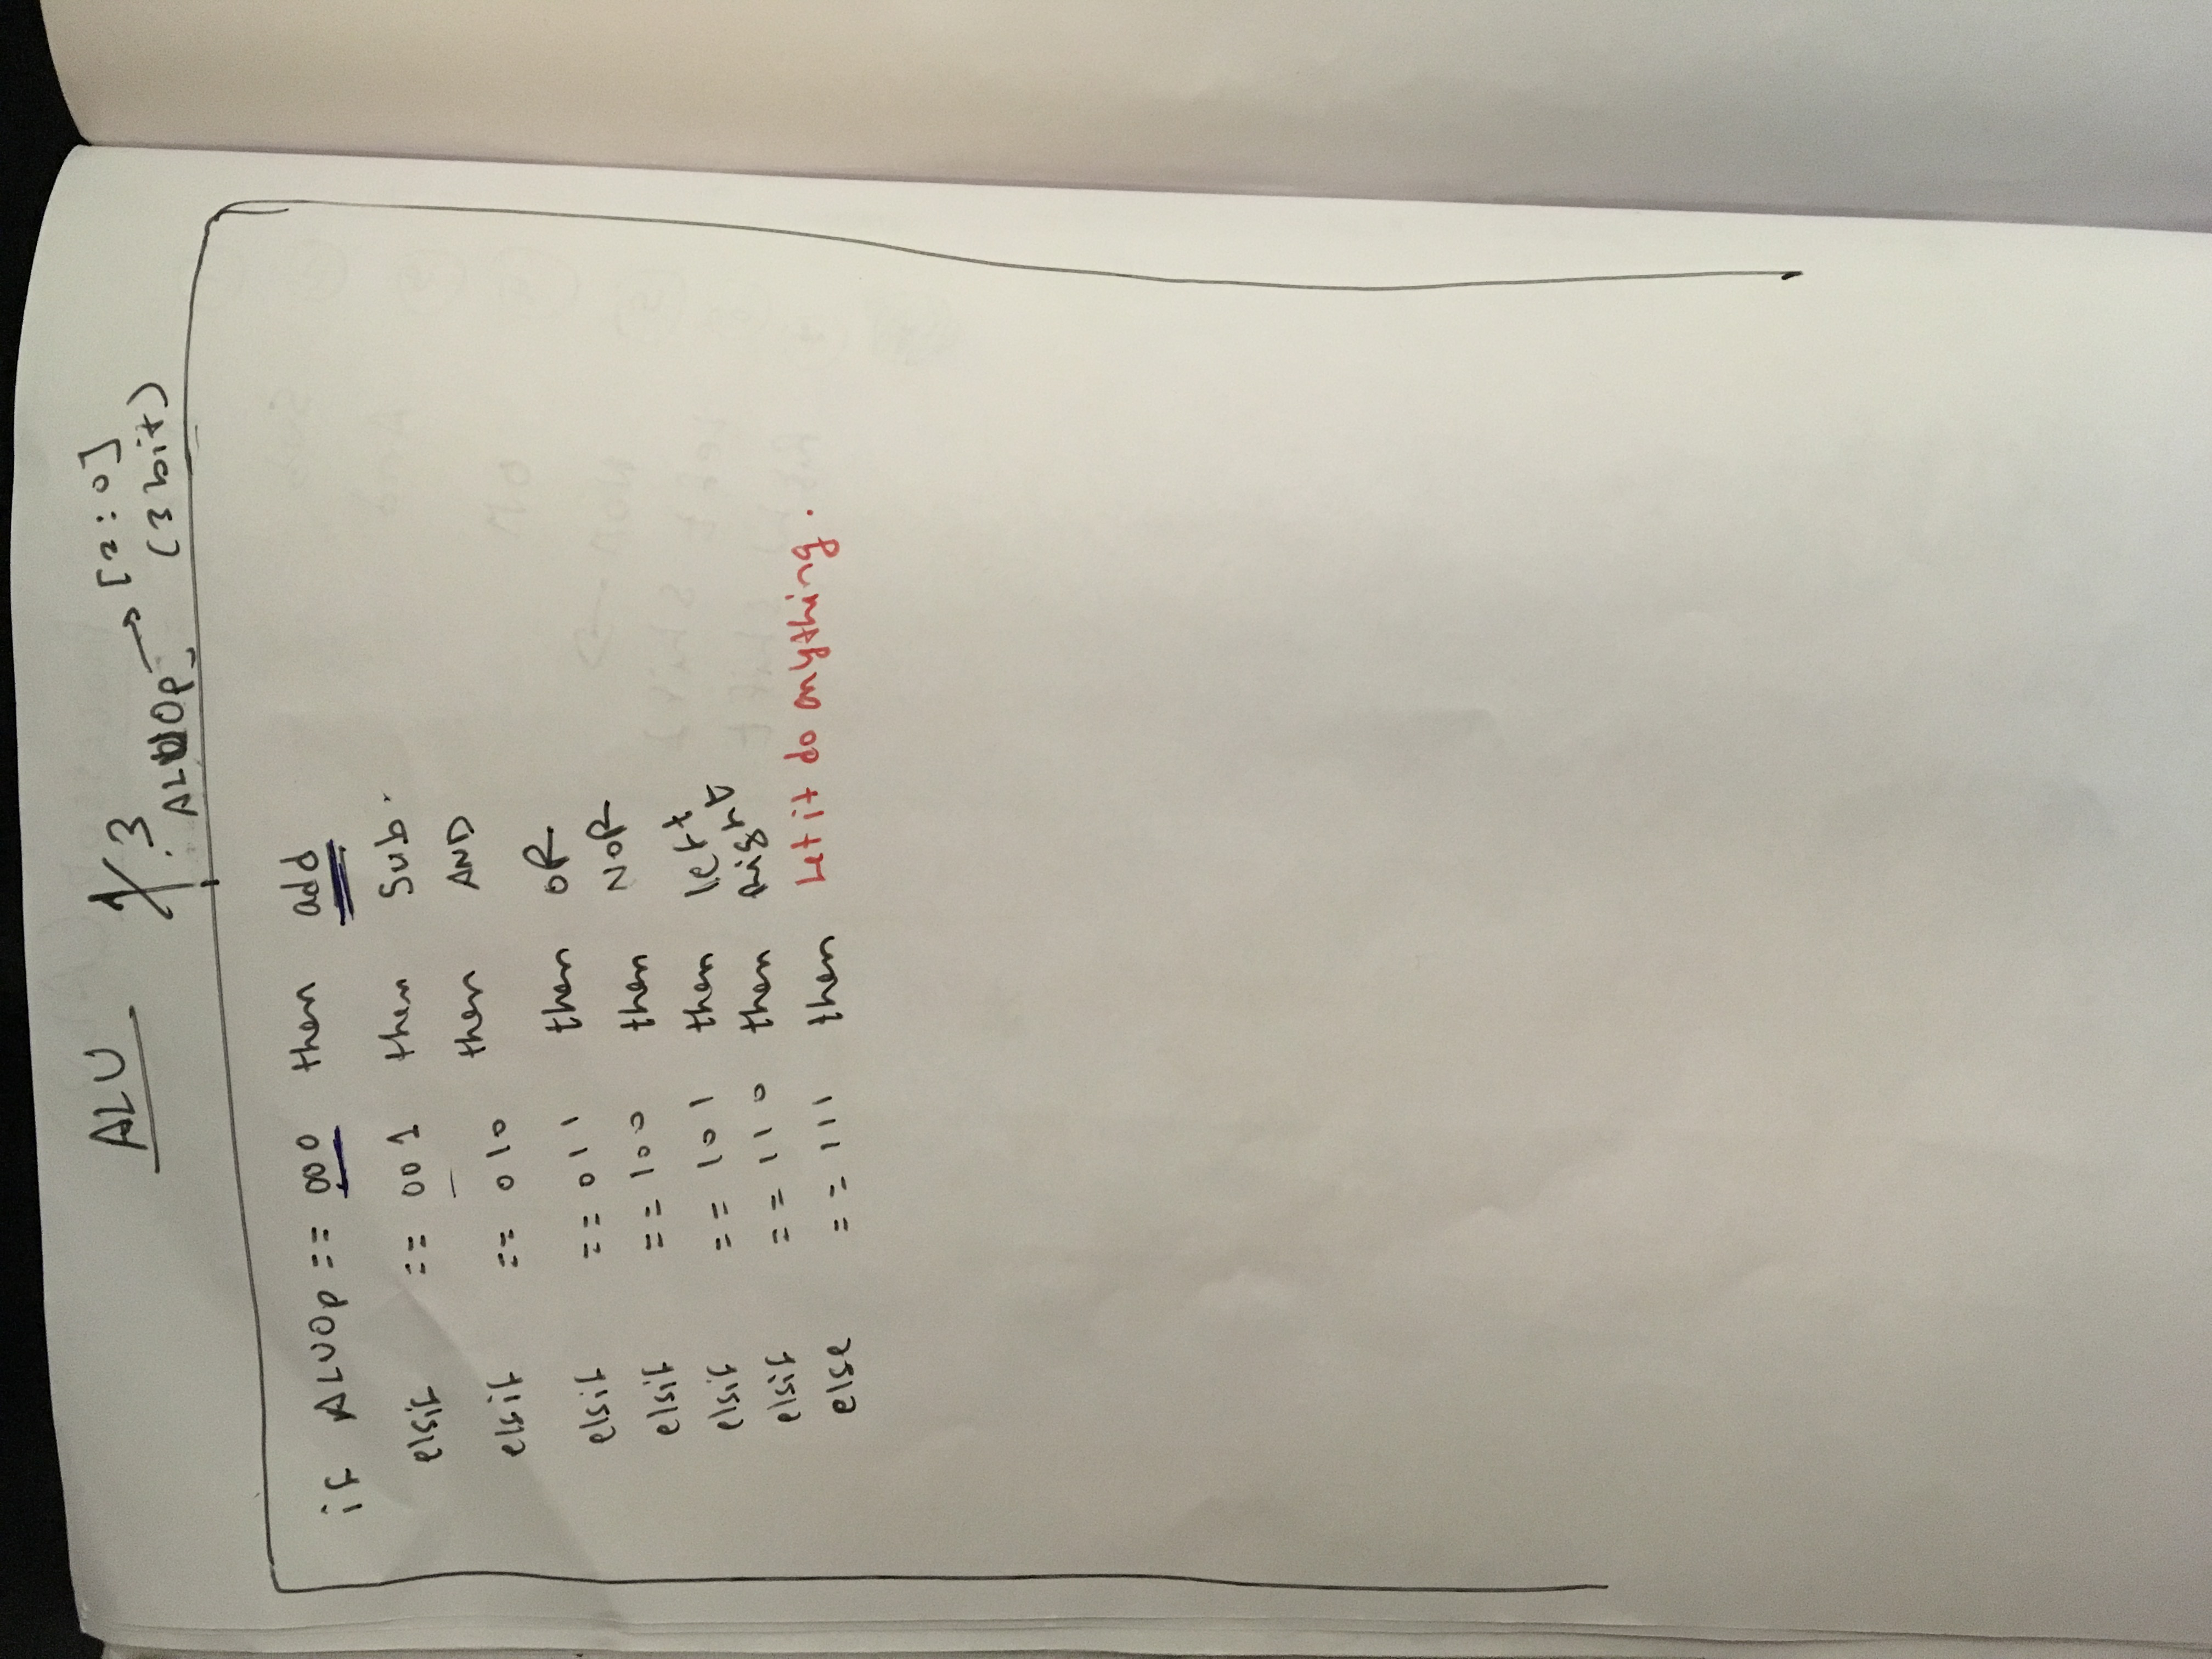 ALU 3
ALUOP → [2:0]
(3 bit)
if ALUOP == 000 then add
elsif == 001 then Sub.
elsif == 010 then AND
elsif == 011 then OR
elsif == 100 then NOR
elsif == 101 then left
elsif == 110 then Right
else == 111 then Let it do anything.